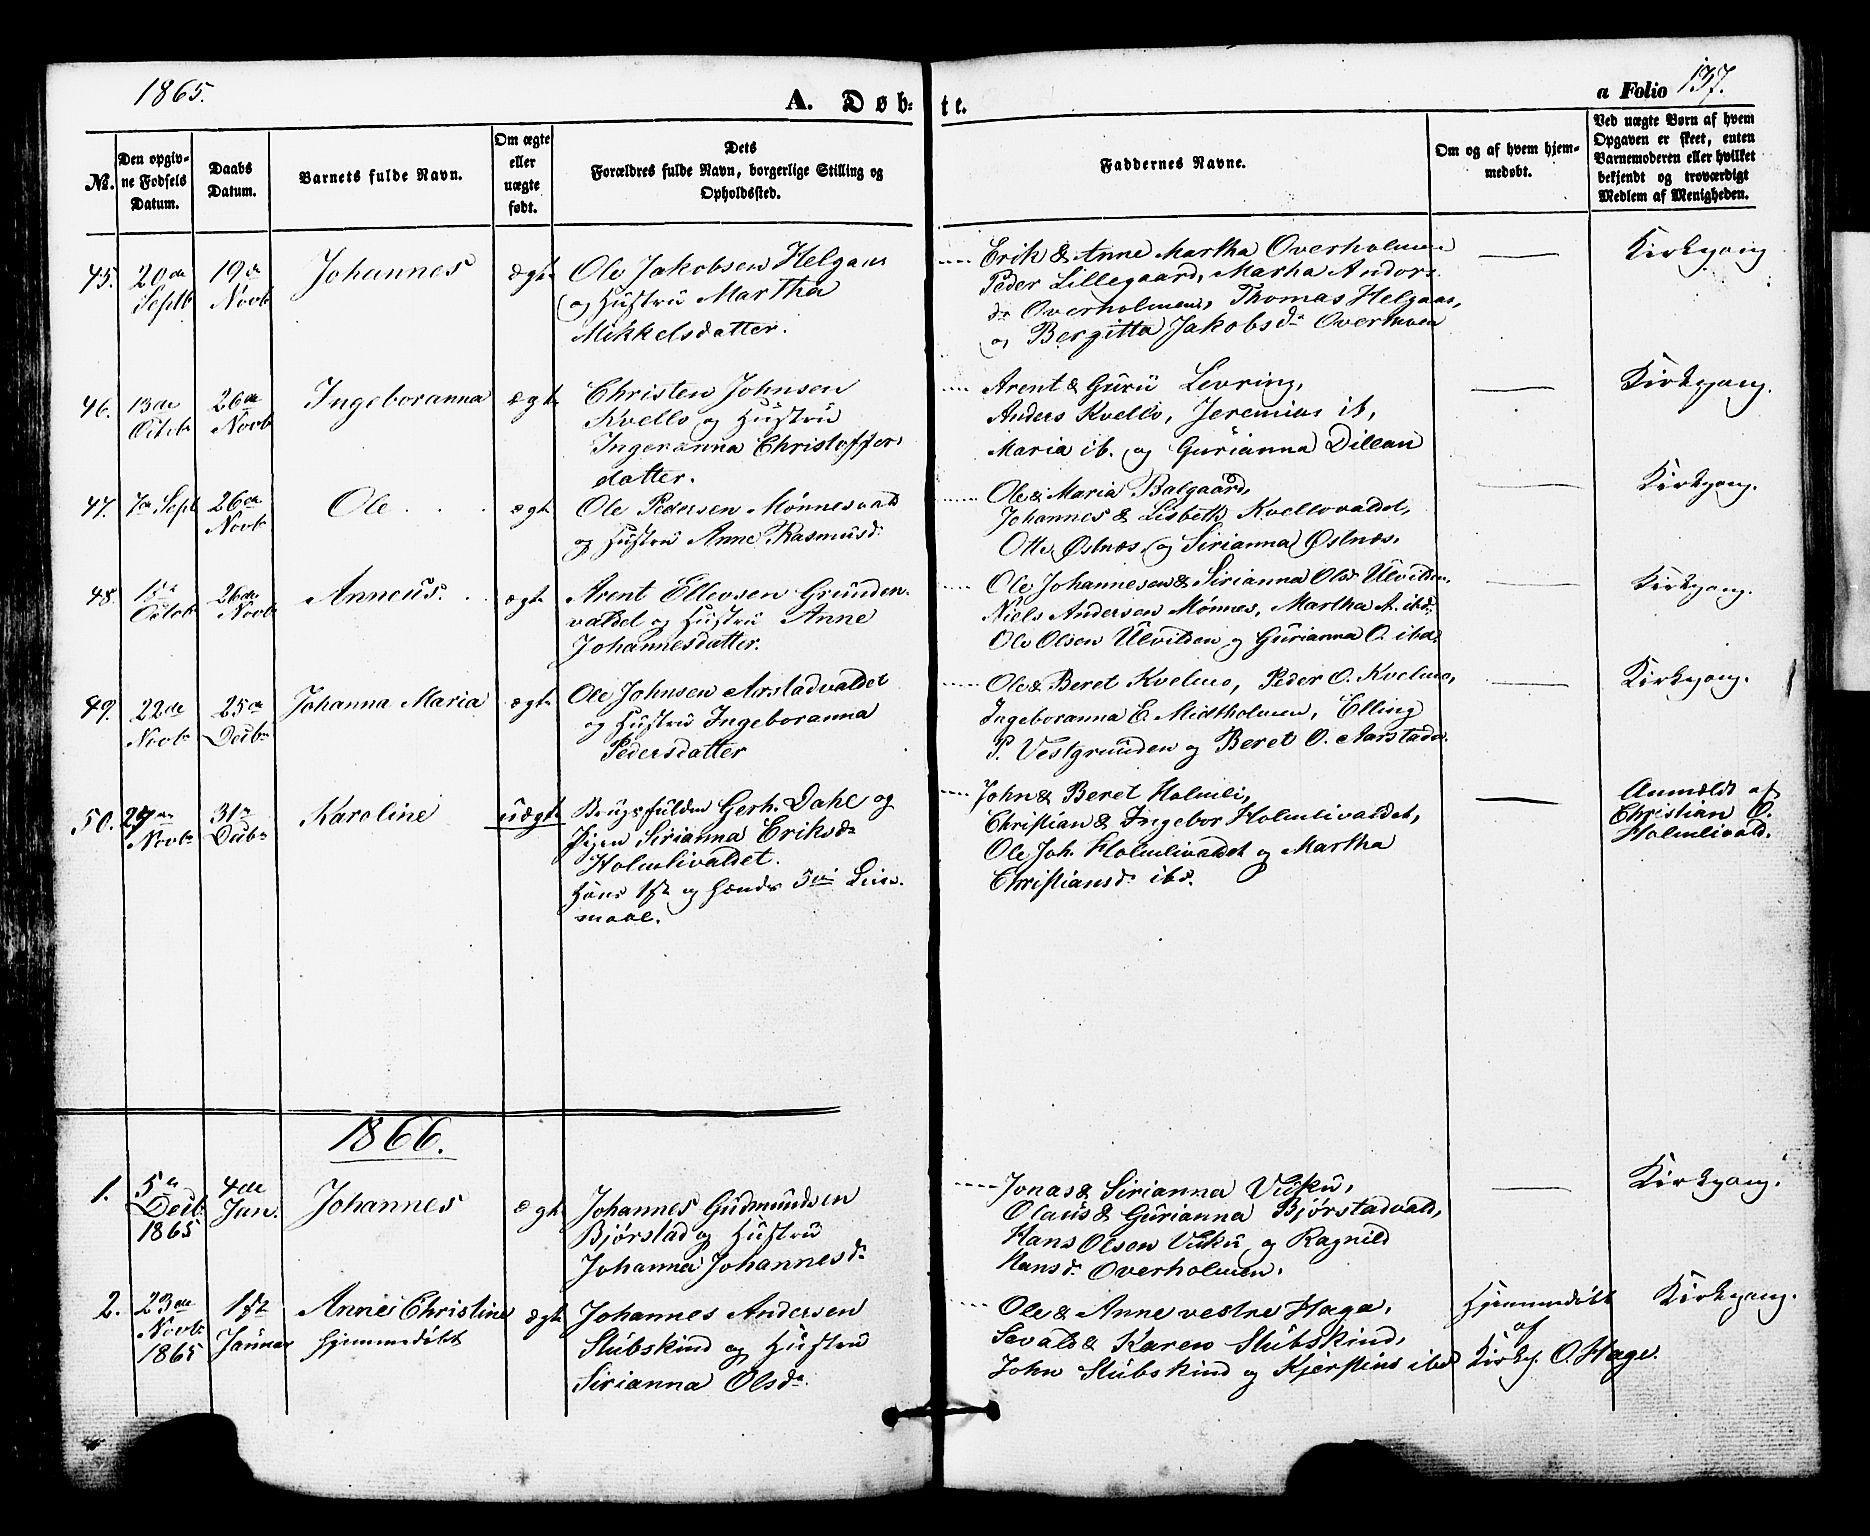 1865.
A. Døbte.
a Folio 137.
№.
Den opgiv-
ne Fødsels
Datum.
Daabs
Datum.
Barnets fulde Navn.
Om ægte
eller
uægte
født.
Dets
Forældres fulde Navn, borgerlige Stilling og
Opholdssted.
Faddernes Navne.
Om og af hvem hjem-
medøbt.
Ved uægte Børn af hvem
Opgaven er skeet, enten
Barnemoderen eller hvilket
bekjendt og troværdigt
Medlem af Menigheden.
45.
20de
Septb
19de
Novb
Johannes
ægte
Ole Jakobsen Helgaas
og Hustru Martha
Mikkelsdatter.
Erik & Anne Martha Overholmen
Peder Lillegaard, Martha Anders
dr Overholmen, Thomas Helgaas,
og Bergitta Jakobsdr Overmoen
Kirkgang
46.
13de
Octob
26de
Novb
Ingeboranna
ægte
Christen Johnsen
Kvello og Hustru
Ingeranna Christoffers
datter.
Arent & Guru Levring,
Anders Kvello, Jeremias ib,
Maria ib. og Gurianna Dillan
Kirkgang.
47.
7de Sept
26de
Novb
Ole
ægte
Ole Pedersen Mønnesvald
og Hustru Anne Rasmusd.
Ole & Maria Balgaard,
Johannes & Lisbeth Kvellovaldet,
Otte Østnæs, og Sirianna Østnæs,
Kirkgang.
48.
15de
Octob
26de
Novb
Anneus.
ægte
Arent Ellevsen Grunden-
valdet og Hustru Anne
Johannesdatter.
Ole Johannesen & Sirianna Olsdr Ulvilden,
Niels Andersen Mønnes, Martha A. ibd.
Ole Olsen Ulvilden og Gurianna O. ibd.
Kirkgang.
49.
22de
Novb
25de
Decb
Johanna Maria
ægte
Ole Johnsen Aarstadvaldet
og Hustru Ingeboranna
Pedersdatter
Ole & Beret Kvelmo, Peder O. Kvelmo,
Ingeboranna E. Midtholmen, Elling
P. Vestgrunden og Beret O. Aarstadv.
Kirkgang.
50.
27de
Novb
31te
Decb
Karoline
uægte
Gerh. Dahl og
Pigen Sirianna Eriksdr
Holmlivaldet.
Hans 1ste og hendes 3die Leier-
maal.
John & Beret Holmli,
Christian & Ingebor Holmlivaldet,
Ole Joh. Holmlivaldet og Martha
Christiansdr ibd.
Anmeldt af
Christian O.
Holmlivald.
1866.
1.
5te
Decb.
1865
4de
Jan.
Johannes
ægte
Johannes Gudmundsen
Bjørstad og Hustru
Johanna Johannesdr
Jonas & Sirianna Vuku,
Olaus & Gurianna Bjørstadvald,
Hans Olsen Vuku og Ragnild
Hansdr Overholmen.
Kirkgang.
2.
23de
Novb
1865
1ste
Januar
Anne Christine
hjemmedøbt
ægte
Johannes Andersen
Stubskind og Hustru
Sirianna Olsdr.
Ole & Anne vestre Hage,
Sevald & Karen Stubskind,
John Stubskind og Kjerstine ibd
Hjemmedøbt
af
Kirkes. O. Hage.
Kirkgang.